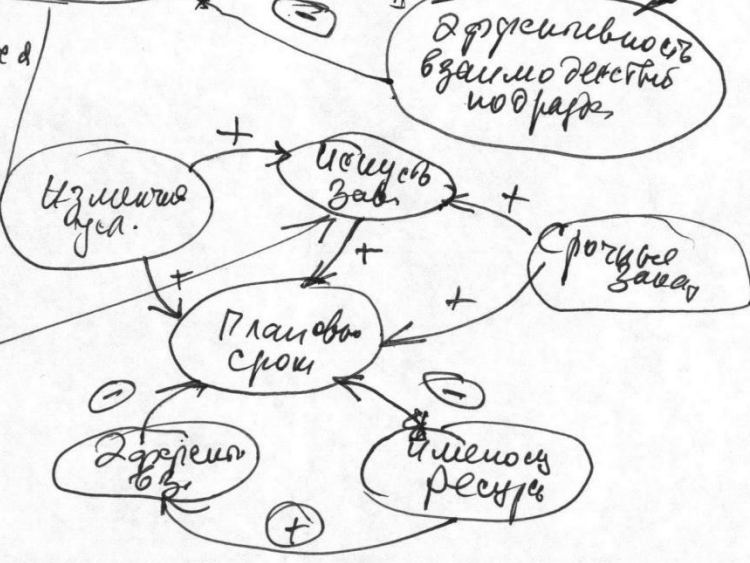 Эффективность
взаимодействий
подразд
Изменчив
усл.
Искусств
зав.
Срочные
заказ
Плановые
сроки
Эффективн
вз.
Имеющ
ресурс
+
+
+
+
+
+
-
-
-